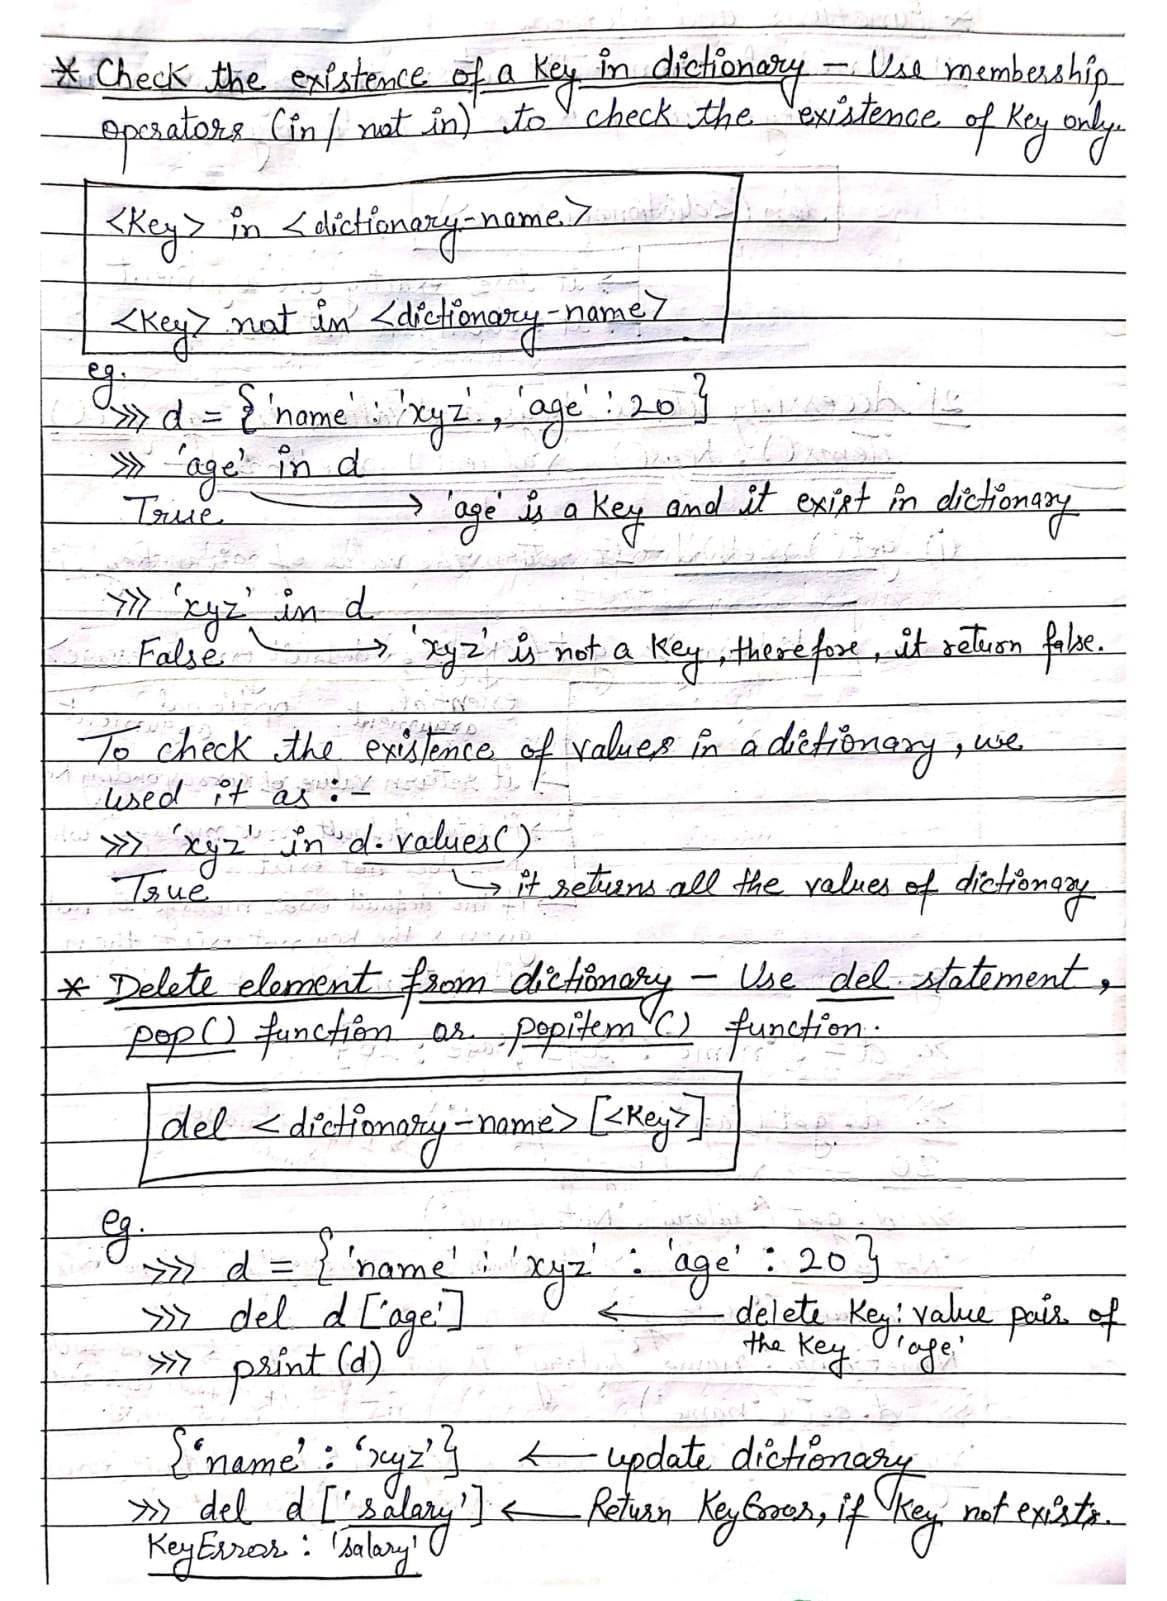 * Check the existence of a key in dictionary – Use membership
operators (in / not in) to check the existence of key only.
<key> in <dictionary-name>
<key> not in <dictionary-name>
eg.
>>> d = {'name' : 'xyz', 'age' : 20}
>>> 'age' in d
True → 'age' is a key and it exist in dictionary
>>> 'xyz' in d
False → 'xyz' is not a key, therefore, it return false.
To check the existence of values in a dictionary, we
used it as :-
>>> 'xyz' in d.values()
True → it returns all the values of dictionary
* Delete element from dictionary – Use del statement,
pop() function or popitem() function.
del <dictionary-name>[<key>]
eg.
>>> d = {'name' : 'xyz' : 'age' : 20}
>>> del d['age'] ← delete key:value pair of
the key 'age'
>>> print(d)
{'name' : 'xyz'} ← update dictionary
>>> del d['salary'] ← Return KeyError, if key not exists.
KeyError : 'salary'